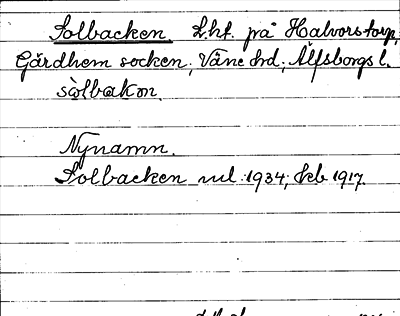 Solbacken. Lht. på Halvorstorp,
Gärdhem socken, Väne hd, Älfsborgs l.
sòlbakan.
Nynamn.
Solbacken ml. 1934, Jkb 1917.